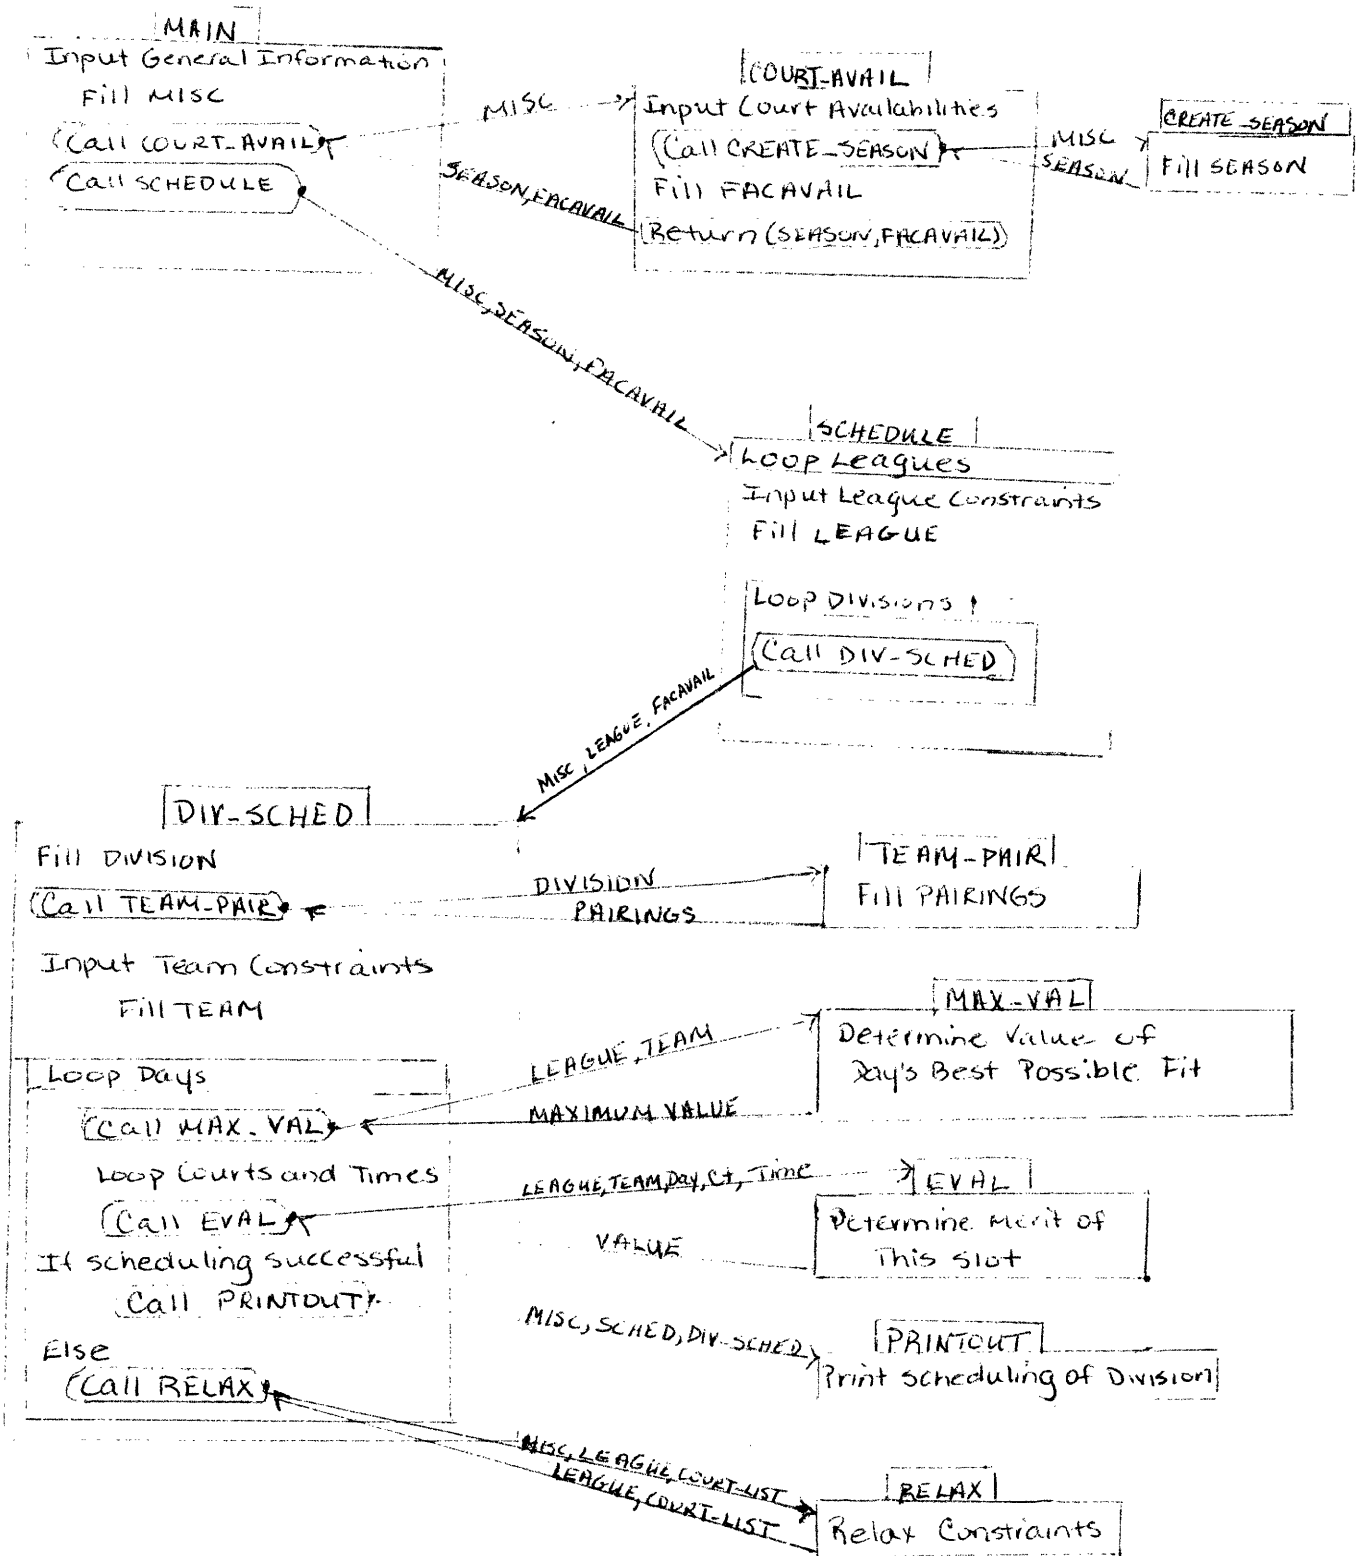 MAIN
Input General Information
Fill MISC
Call COURT_AVAIL
Call SCHEDULE
MISC
SEASON, FACAVAIL
COURT-AVAIL
Input Court Availabilities
Call CREATE_SEASON
Fill FACAVAIL
Return (SEASON, FACAVAIL)
MISC
SEASON
CREATE_SEASON
Fill SEASON
MISC, SEASON, FACAVAIL
SCHEDULE
Loop Leagues
Input League Constraints
Fill LEAGUE
Loop Divisions
Call DIV-SCHED
MISC, LEAGUE, FACAVAIL
DIV-SCHED
Fill DIVISION
Call TEAM-PAIR
DIVISION
PAIRINGS
TEAM-PAIR
Fill PAIRINGS
Input Team Constraints
Fill TEAM
Loop Days
Call MAX-VAL
LEAGUE, TEAM
MAXIMUM VALUE
MAX-VAL
Determine Value of
Day's Best Possible Fit
Loop Courts and Times
Call EVAL
LEAGUE, TEAM, Day, Ct, Time
VALUE
EVAL
Determine Merit of
This slot
If scheduling successful
Call PRINTOUT
MISC, SCHED, DIV-SCHED
PRINTOUT
Print scheduling of Division
Else
Call RELAX
MISC, LEAGUE, COURT-LIST
LEAGUE, COURT-LIST
RELAX
Relax Constraints